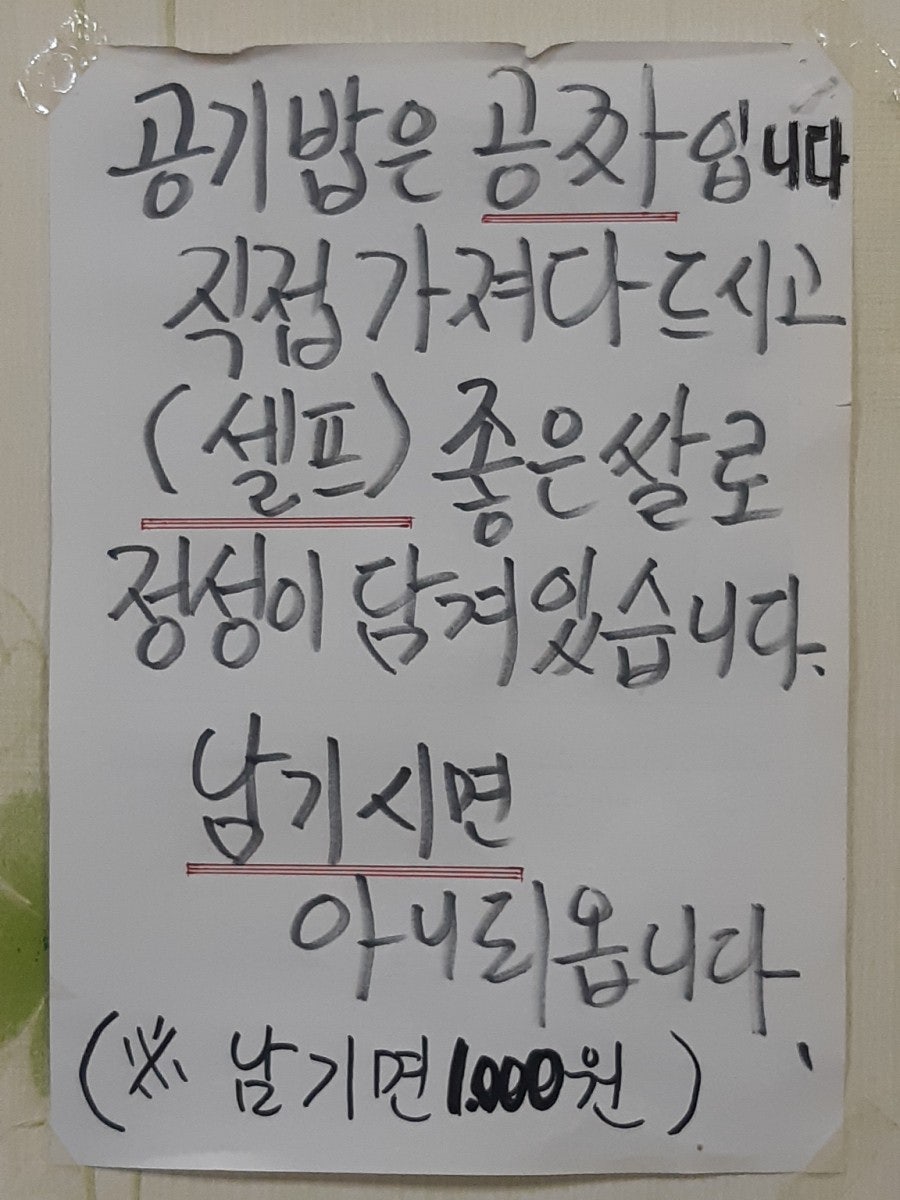 공기밥은 공짜입니다
직접 가져다 드시고
(셀프) 좋은 쌀로
정성이 담겨있습니다.
남기시면
아니되옵니다.
(※ 남기면 1.000원)